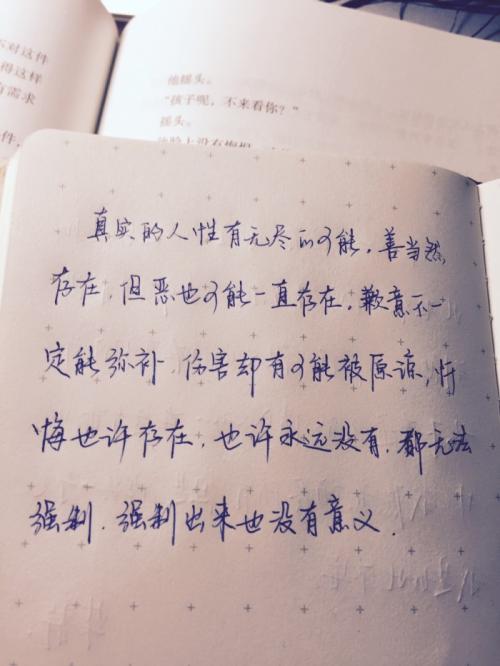 不对这件
得这样
有需求
件，
他摇头。
“孩子呢，不来看你？”
摇头。
真实的人性有无尽的可能。善当然
存在，但恶也可能一直存在。歉意不一
定能弥补，伤害却有可能被原谅，忏
悔也许存在，也许永远没有，都无法
强制，强制出来也没有意义.